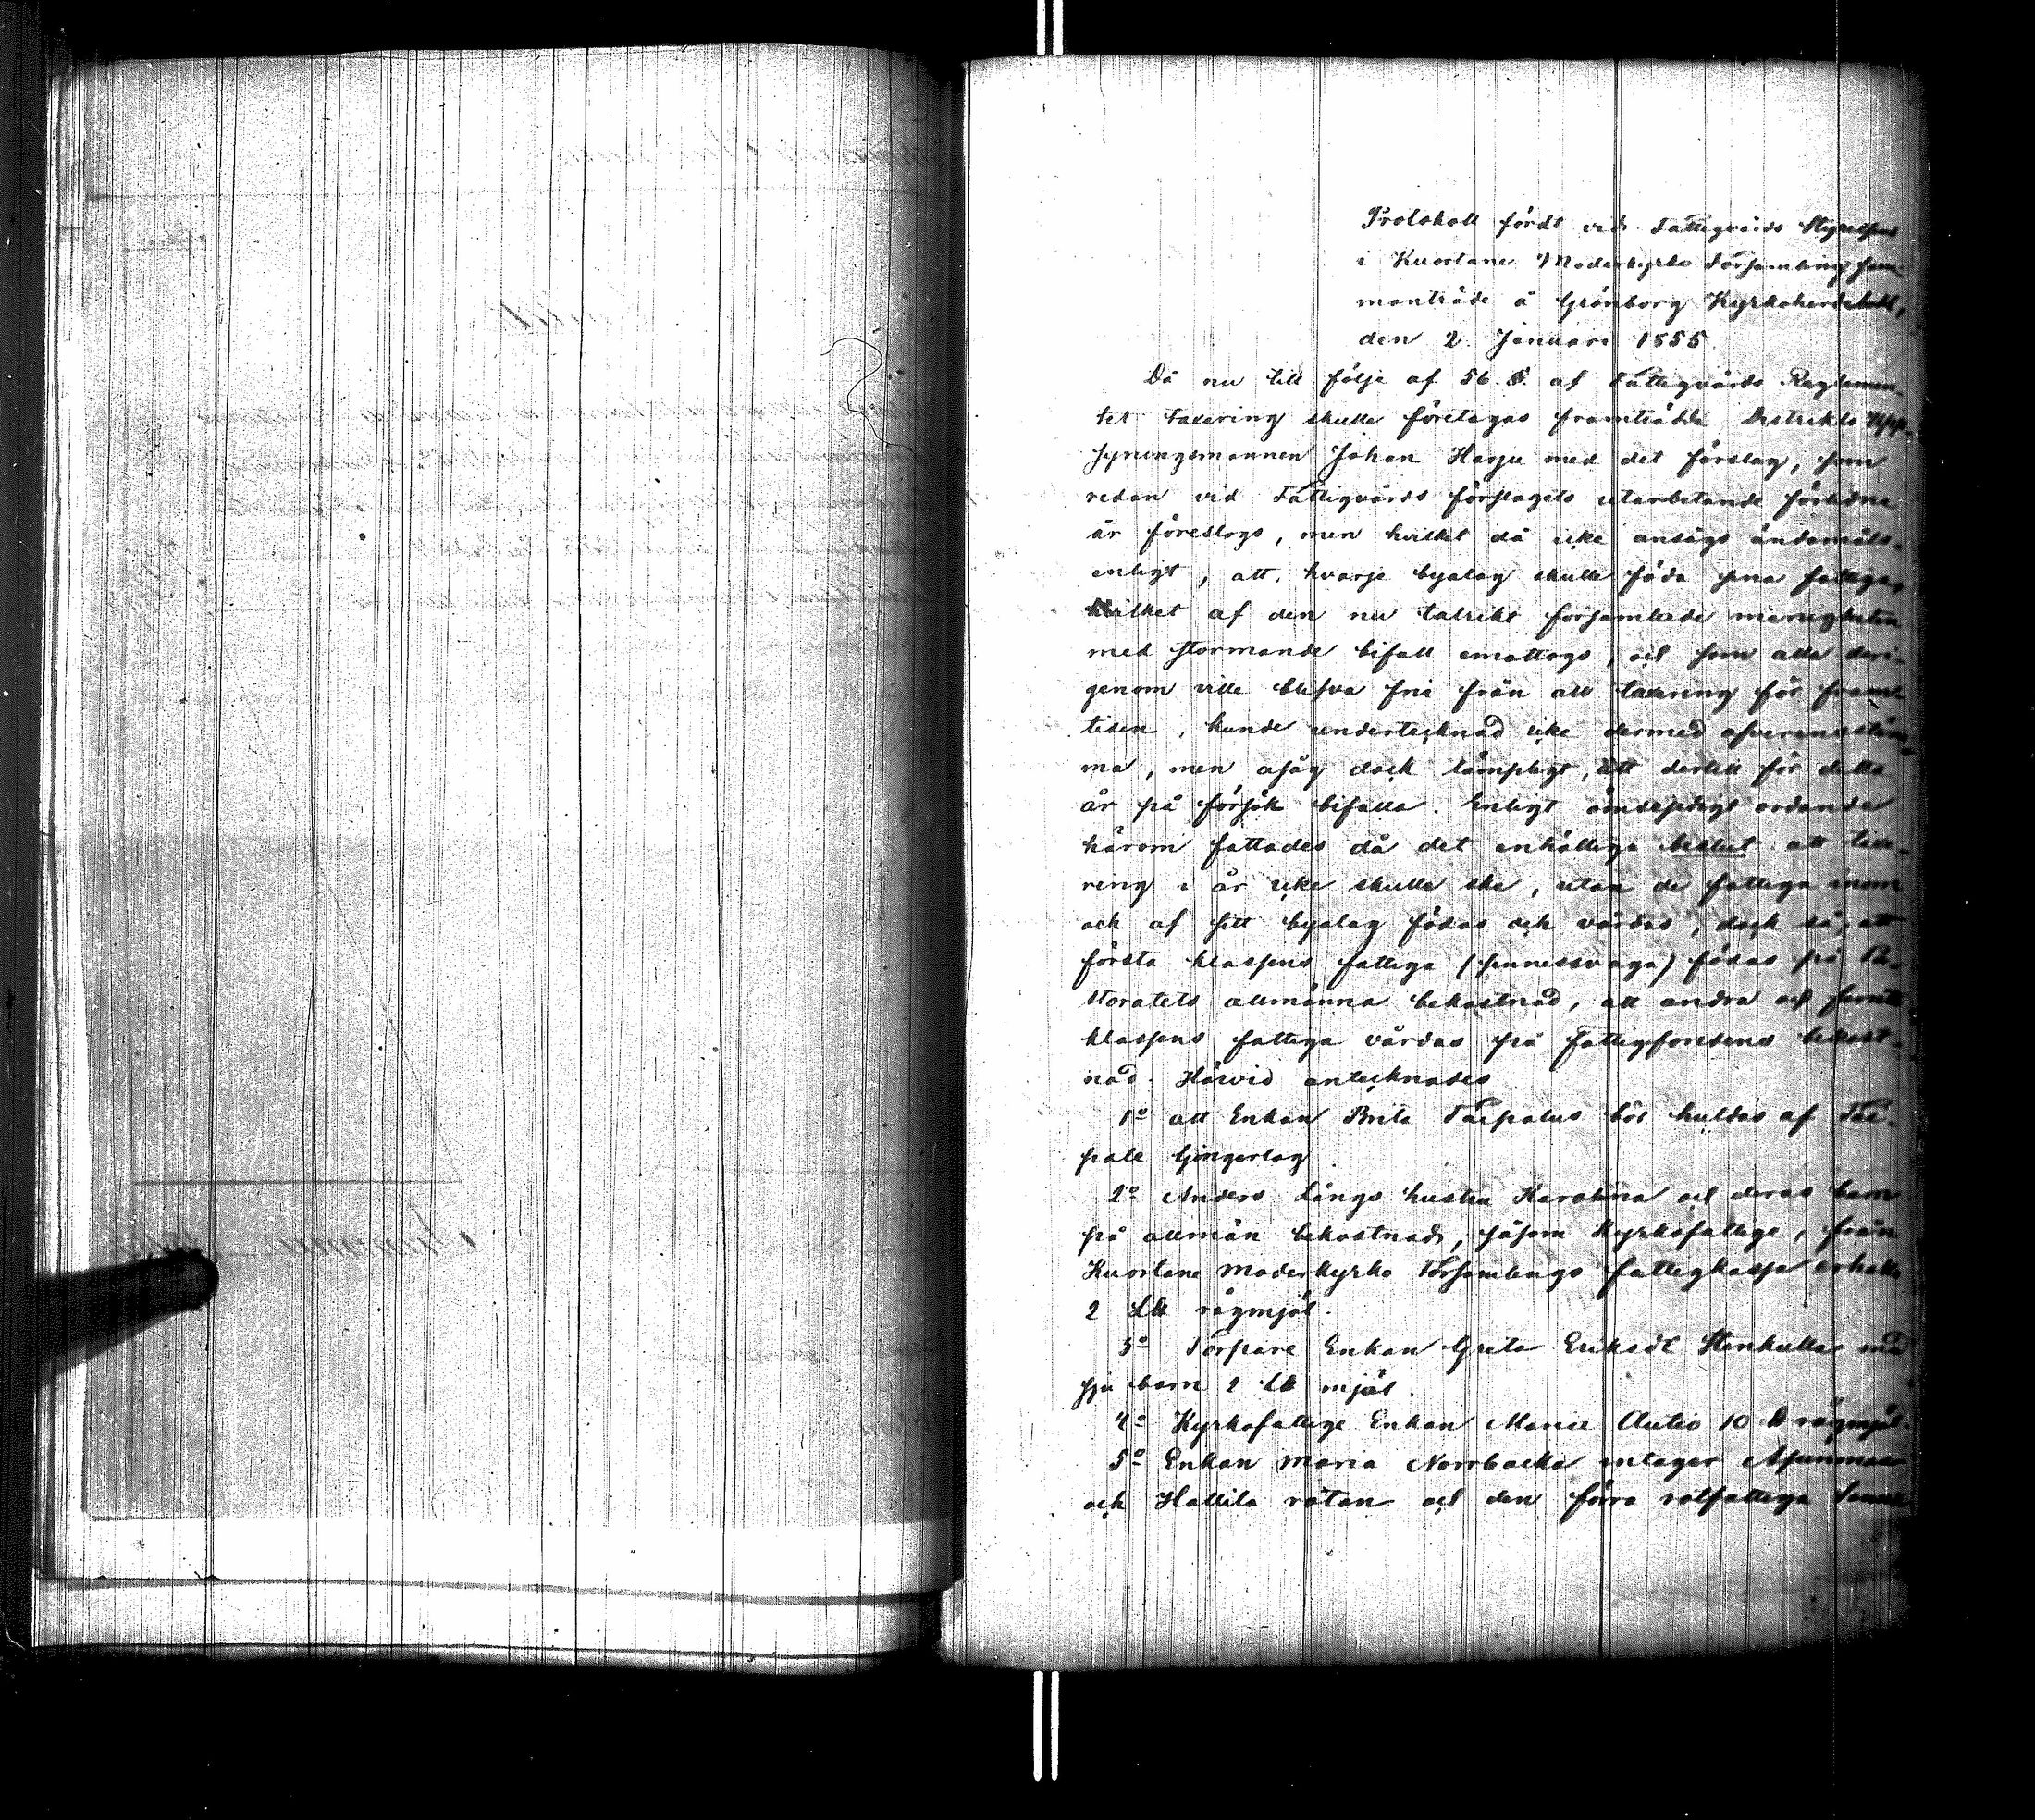 Protokoll fördt vid Fattigvårds Styrelsens
i Kuortane Moderkyrko Församling sam-
manträde å Grönborg Kyrkoherdeboll,
den 2. Januari 1855.
Då nu till följe af 56. §. af Fattigvårds Reglemen-
tet taxering skulle företagas framträdde Distrikts Upp-
syningsmannen Johan Harju med det förslag, som
redan vid Fattigvårds förslagets utarbetande förledne
år föreslogs, men hvilket då icke ansågs ändamåls-
enligt, att hvarje byalag skulle föda sina fattiga,
hvilket af den nu talrikt församlade menigheten
med stormande bifall emottogs, och som alla deri-
genom ville blifva frie från all taxering för fram-
tiden, kunde undertecknad icke dermed öfverensstäm-
ma, men ansåg dock lämpligt, att dertill för detta
år på försök bifalla. Enligt ömsesidigt ordande
härom fattades då det enhälliga beslut att taxe-
ring i år icke skulle ske, utan de fattiga inom
och af sitt byalag födas och vårdas, dock så, att
första klassens fattiga (sinnessvaga) födas på Pa-
storatets allmänna bekostnad, att andra och femte
klassens fattiga vårdas på fattigfondens bekost-
nad. Härvid antecknades
1o att Enkan Brita Taipalus bör huldas af Tai-
pale Gingerlag.
2o Anders Långs hustru Karolina och deras barn
på allmän bekostnad, såsom Kyrkofattige, från
Kuortane moderkyrko Församlings fattigkassa erhålla
2 L℔ rågmjöl.
3o Torpare Enkan Greta Eriksdr Stenkulla med
sju barn 2 L℔ mjöl.
4o Kyrkofattige Enkan Maria Autio 10 ℔ rågmjöl.
5o Enkan Maria Norrbacka intages
och Hallila rotan och den förra rotfattiga